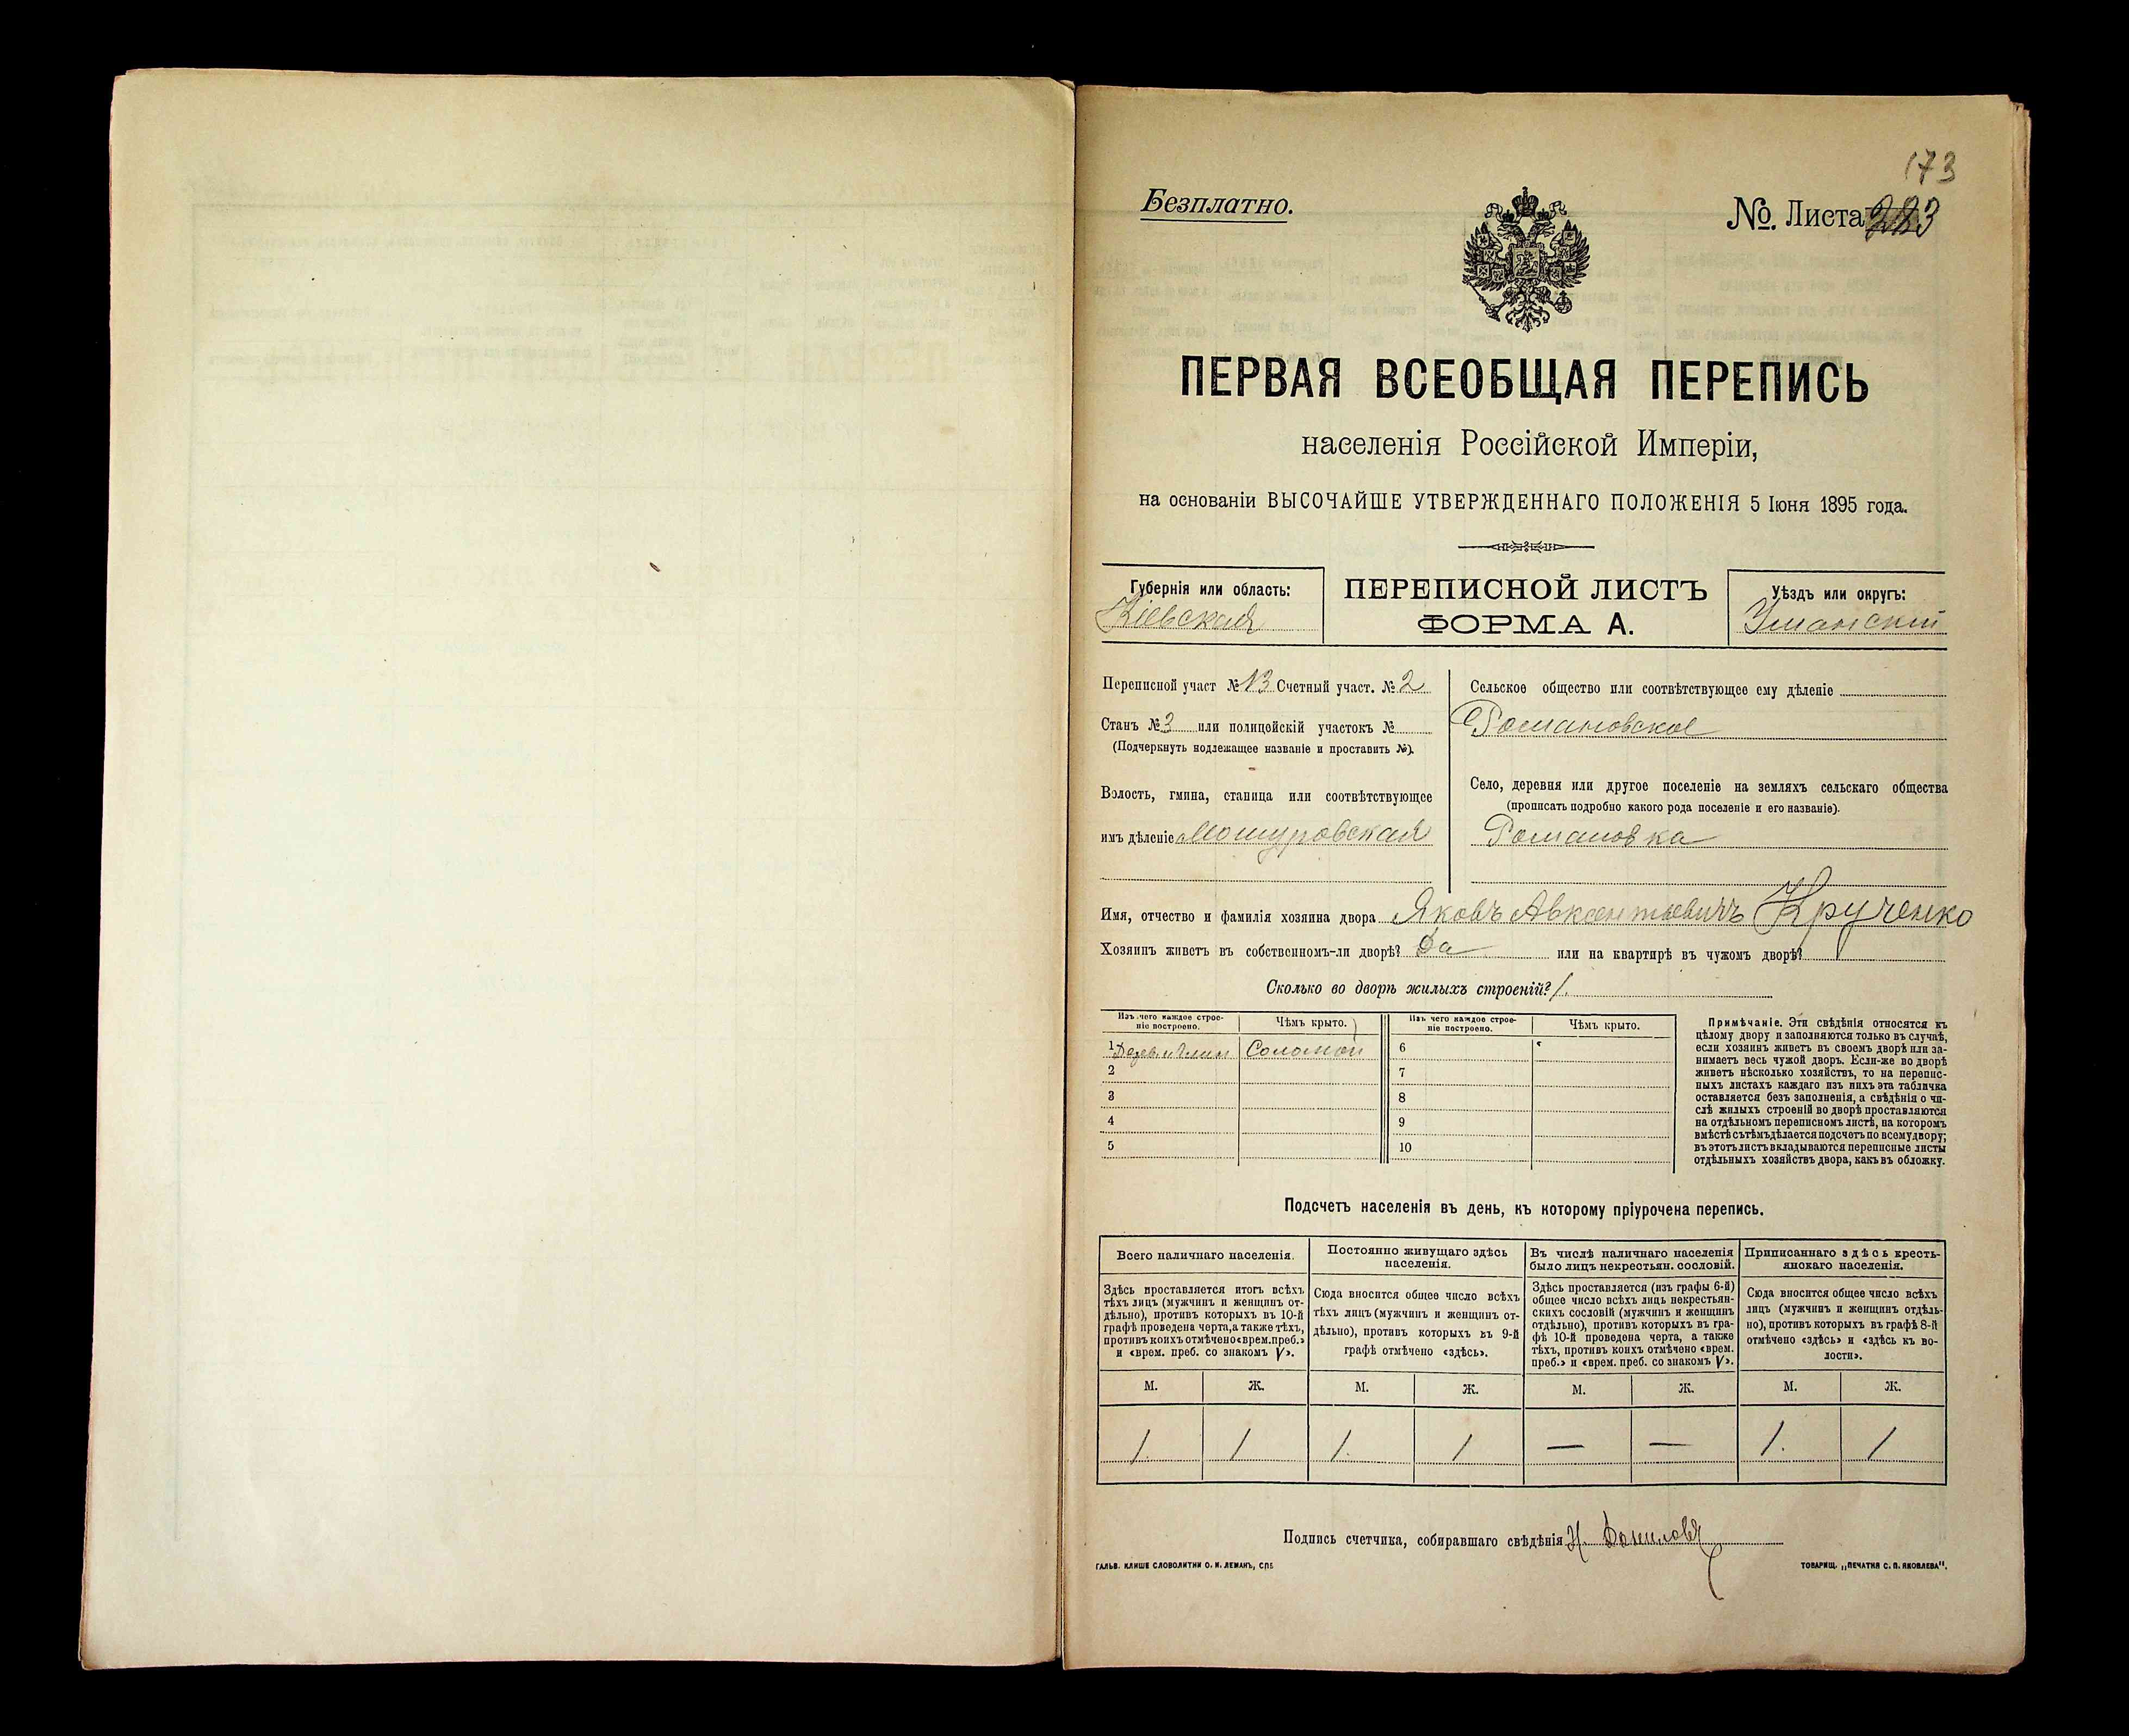 173
Безплатно.
№. Листа
ПЕРВАЯ ВСЕОБЩАЯ ПЕРЕПИСЬ
населенія Россійской Имперіи,
на основаніи ВЫСОЧАЙШЕ УТВЕРЖДЕННАГО ПОЛОЖЕНІЯ 5 Іюня 1895 года.
Губернія или область:
Кіевская
ПЕРЕПИСНОЙ ЛИСТЪ
ФОРМА А.
Уѣздъ или округъ:
Уманскій
Переписной участ № 13 Счетный участ. № 2
Станъ № 3 или полицейскій участокъ №
(Подчеркнуть надлежащее названіе и проставить №).
Волость, гмина, станица или соотвѣтствующее
имъ дѣленіе Мошуровская
Сельское общество или соотвѣтствующее ему дѣленіе
Романовское
Село, деревня или другое поселеніе на земляхъ сельскаго общества
(прописать подробно какого рода поселеніе и его названіе).
Романовка
Имя, отчество и фамилія хозяина двора Яковъ Авксентьевичъ Крученко
Хозяинъ живетъ въ собственномъ-ли дворѣ? Да или на квартирѣ въ чужомъ дворѣ?
Сколько во дворѣ жилыхъ строеній? 1.
Изъ чего каждое строе-
ніе построено.
Чѣмъ крыто.
Изъ чего каждое строе-
ніе построено.
Чѣмъ крыто.
1 Соломой 6
2 7
3 8
4 9
5 10
Примѣчаніе. Эти свѣдѣнія относятся къ
цѣлому двору и заполняются только въ случаѣ,
если хозяинъ живетъ въ своемъ дворѣ или за-
нимаетъ весь чужой дворъ. Если-же во дворѣ
живетъ нѣсколько хозяйствъ, то на перепис-
ныхъ листахъ каждаго изъ нихъ эта табличка
оставляется безъ заполненія, а свѣдѣнія о чи-
слѣ жилыхъ строеній во дворѣ проставляются
на отдѣльномъ переписномъ листѣ, на которомъ
вмѣстѣ съ тѣмъ дѣлается подсчетъ по всему двору;
въ этотъ листъ вкладываются переписные листы
отдѣльныхъ хозяйствъ двора, какъ въ обложку.
Подсчетъ населенія въ день, къ которому пріурочена перепись.
Всего наличнаго населенія.
Здѣсь проставляется итогъ всѣхъ
тѣхъ лицъ (мужчинъ и женщинъ от-
дѣльно), противъ которыхъ въ 10-й
графѣ проведена черта, а также тѣхъ,
противъ коихъ отмѣчено «врем. преб.»
и «врем. преб. со знакомъ V».
Постоянно живущаго здѣсь
населенія.
Сюда вносится общее число всѣхъ
тѣхъ лицъ (мужчинъ и женщинъ от-
дѣльно), противъ которыхъ въ 9-й
графѣ отмѣчено «здѣсь».
Въ числѣ наличнаго населенія
было лицъ некрестьян. сословій.
Здѣсь проставляется (изъ графы 6-й)
общее число всѣхъ лицъ некрестьян-
скихъ сословій (мужчинъ и женщинъ
отдѣльно), противъ которыхъ въ гра-
фѣ 10-й проведена черта, а также
тѣхъ, противъ коихъ отмѣчено «врем.
преб.» и «врем. преб. со знакомъ V».
Приписаннаго здѣсь кресть-
янскаго населенія.
Сюда вносится общее число всѣхъ
лицъ (мужчинъ и женщинъ отдѣль-
но), противъ которыхъ въ графѣ 8-й
отмѣчено «здѣсь» и «здѣсь къ во-
лости».
М. Ж. М. Ж. М. Ж. М. Ж.
1. 1 1. 1 — — 1. 1
Подпись счетчика, собиравшаго свѣдѣнія Н. Даниловъ
ГАЛЬВ. КЛИШЕ СЛОВОЛИТНИ О. И. ЛЕМАНЪ, СПБ
ТОВАРИЩ. „ПЕЧАТНЯ С. П. ЯКОВЛЕВА".